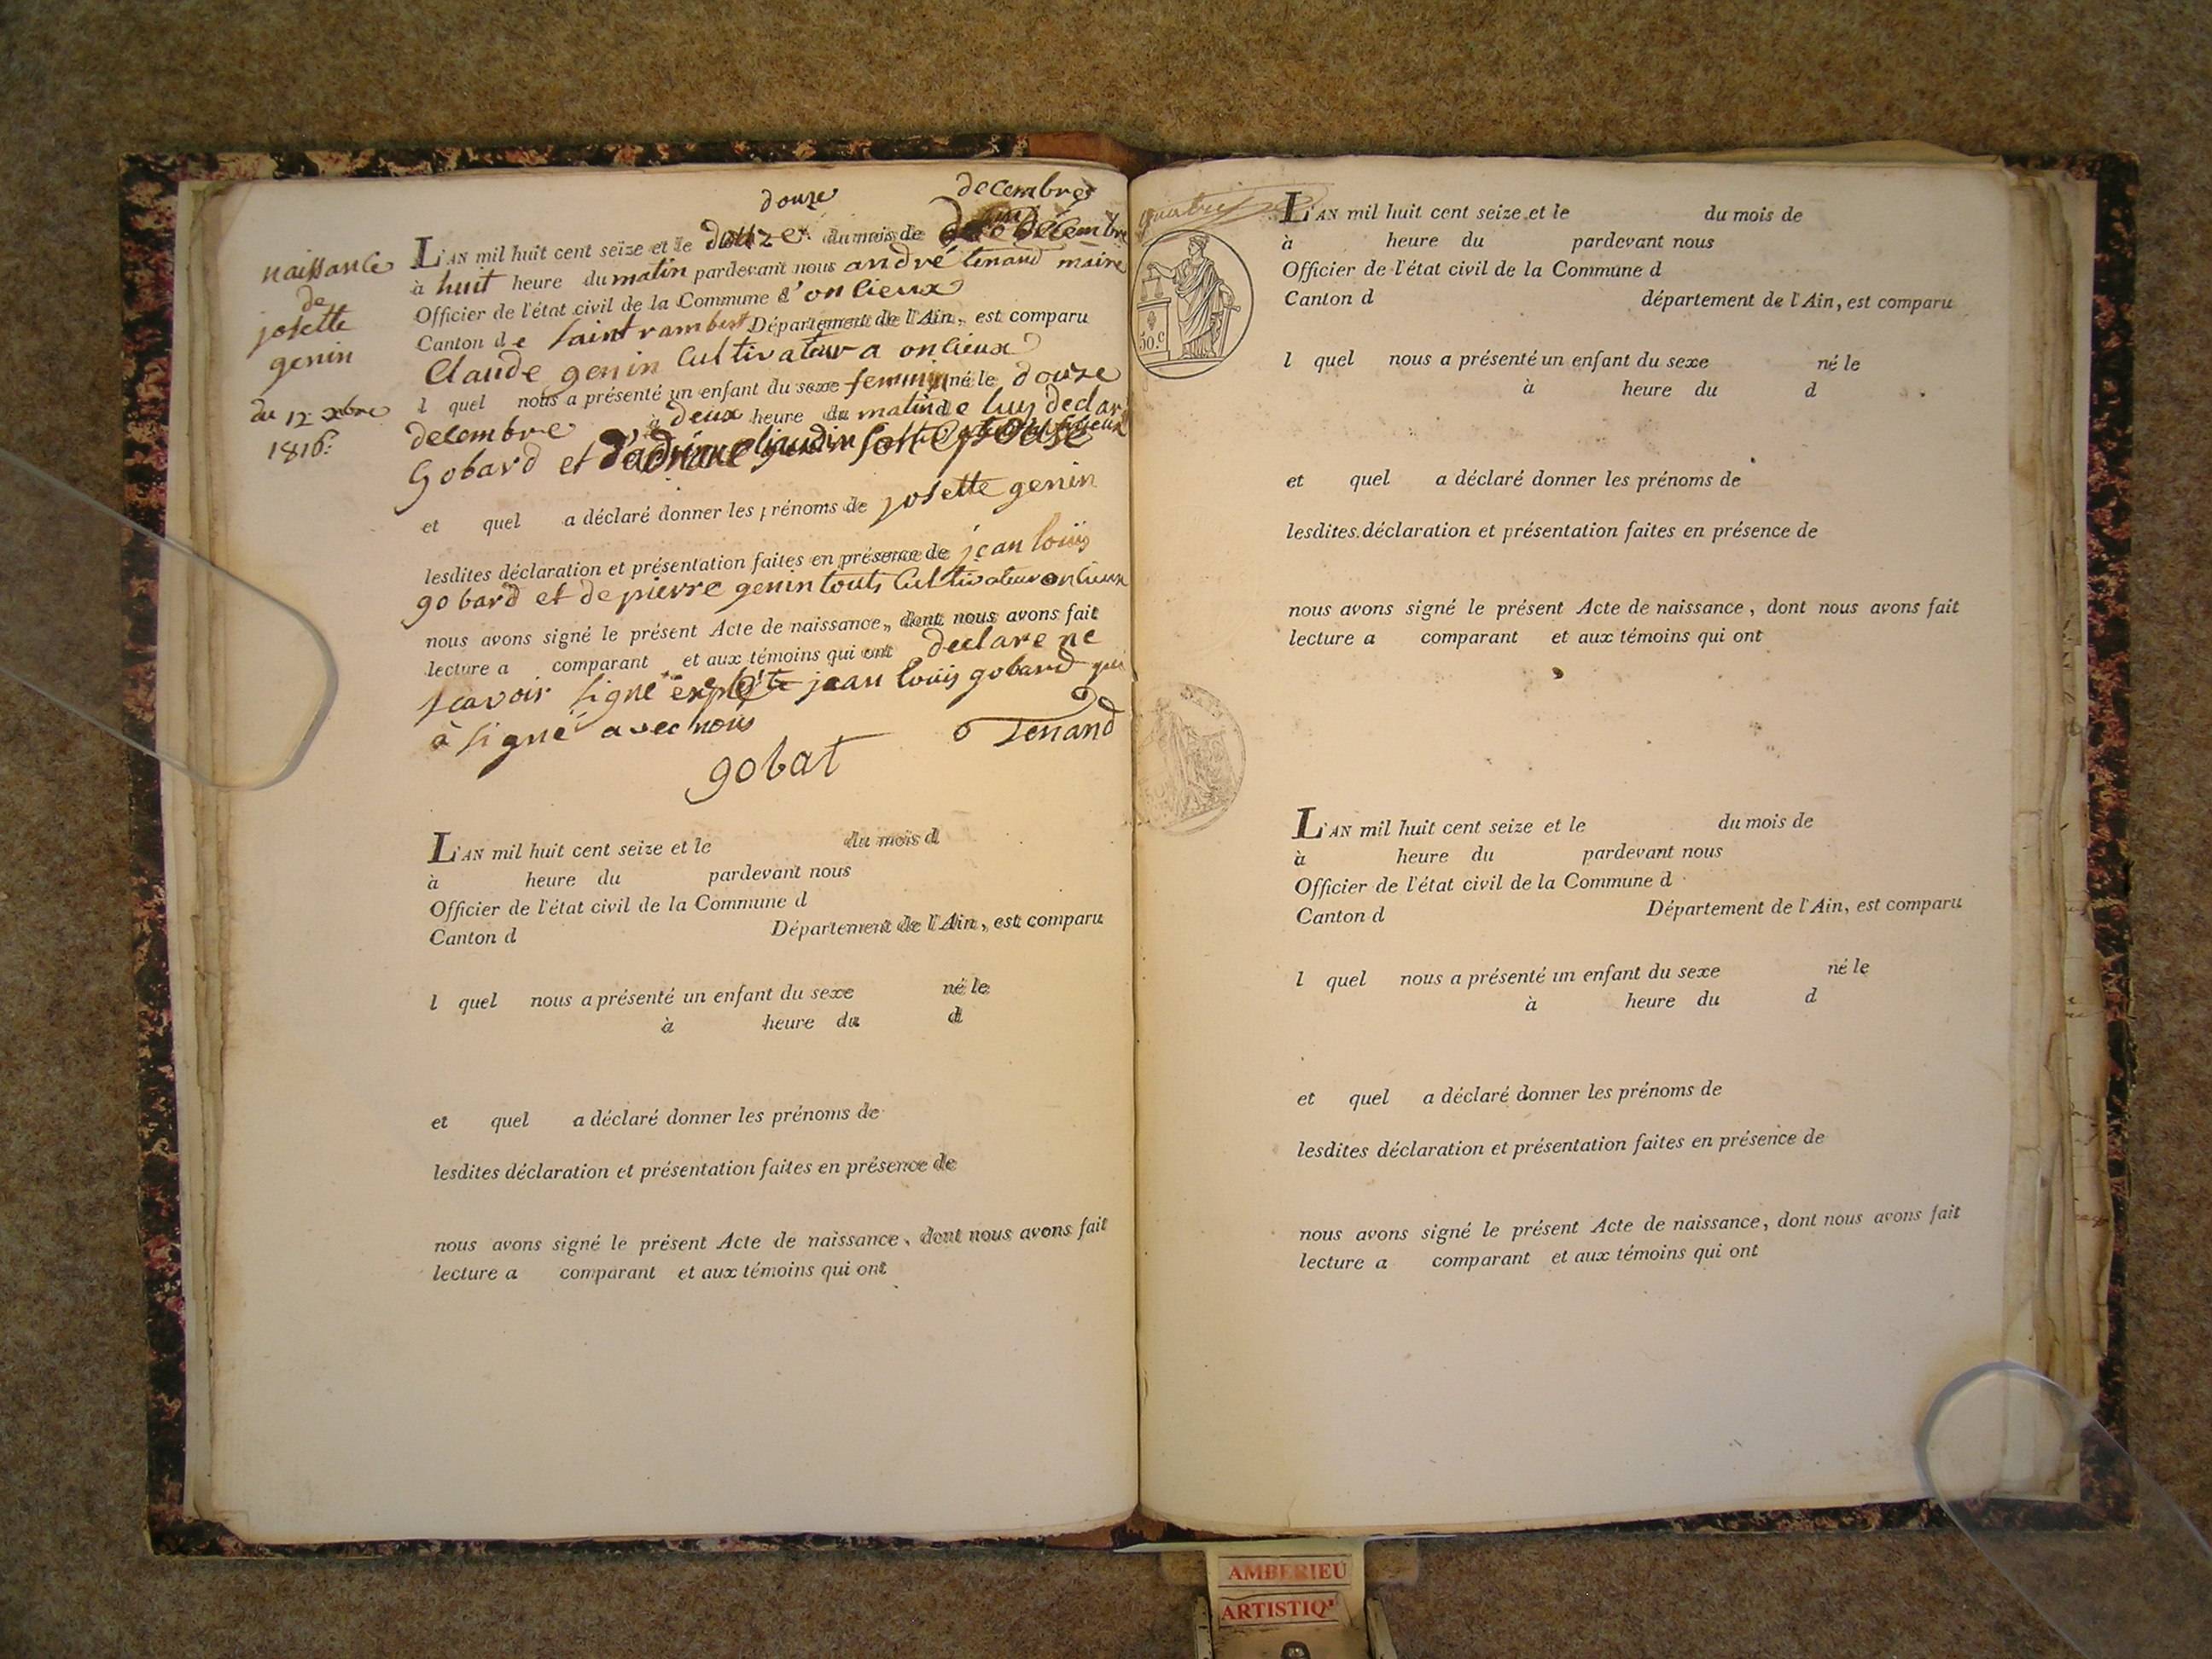 douze decembre
naissance
de
josette
genin
du 12 xbre
1816
L'AN mil huit cent seize et le douze du mois de Décembre
à huit heure du matin pardevant nous andré tenand maire
Officier de l'état civil de la Commune d'onlieux
Canton de saint rambert Département de l'Ain, est comparu
Claude genin Cultivateur a onlieux
l quel nous a présenté un enfant du sexe feminin né le douze
decembre à deux heure du matin de luy declar
Gobard et son epouse
et quel a déclaré donner les prénoms de josette genin
lesdites déclaration et présentation faites en présence de jean louis
gobard et de pierre genin touts Cultivateur onlieux
nous avons signé le présent Acte de naissance, dont nous avons fait
lecture a comparant et aux témoins qui ont declare ne
scavoir signé jean louis gobard qui
à signé avec nous
Tenand
gobat
L'AN mil huit cent seize et le du mois d
à heure du pardevant nous
Officier de l'état civil de la Commune d
Canton d Département de l'Ain, est comparu
l quel nous a présenté un enfant du sexe né le
à heure du d
et quel a déclaré donner les prénoms de
lesdites déclaration et présentation faites en présence de
nous avons signé le présent Acte de naissance, dont nous avons fait
lecture a comparant et aux témoins qui ont
50.c
L'AN mil huit cent seize et le du mois de
à heure du pardevant nous
Officier de l'état civil de la Commune d
Canton d département de l'Ain, est comparu
l quel nous a présenté un enfant du sexe né le
à heure du d
et quel a déclaré donner les prénoms de
lesdites déclaration et présentation faites en présence de
nous avons signé le présent Acte de naissance, dont nous avons fait
lecture a comparant et aux témoins qui ont
L'AN mil huit cent seize et le du mois de
à heure du pardevant nous
Officier de l'état civil de la Commune d
Canton d Département de l'Ain, est comparu
l quel nous a présenté un enfant du sexe né le
à heure du d
et quel a déclaré donner les prénoms de
lesdites déclaration et présentation faites en présence de
nous avons signé le présent Acte de naissance, dont nous avons fait
lecture a comparant et aux témoins qui ont
AMBERIEU
ARTISTIQ'